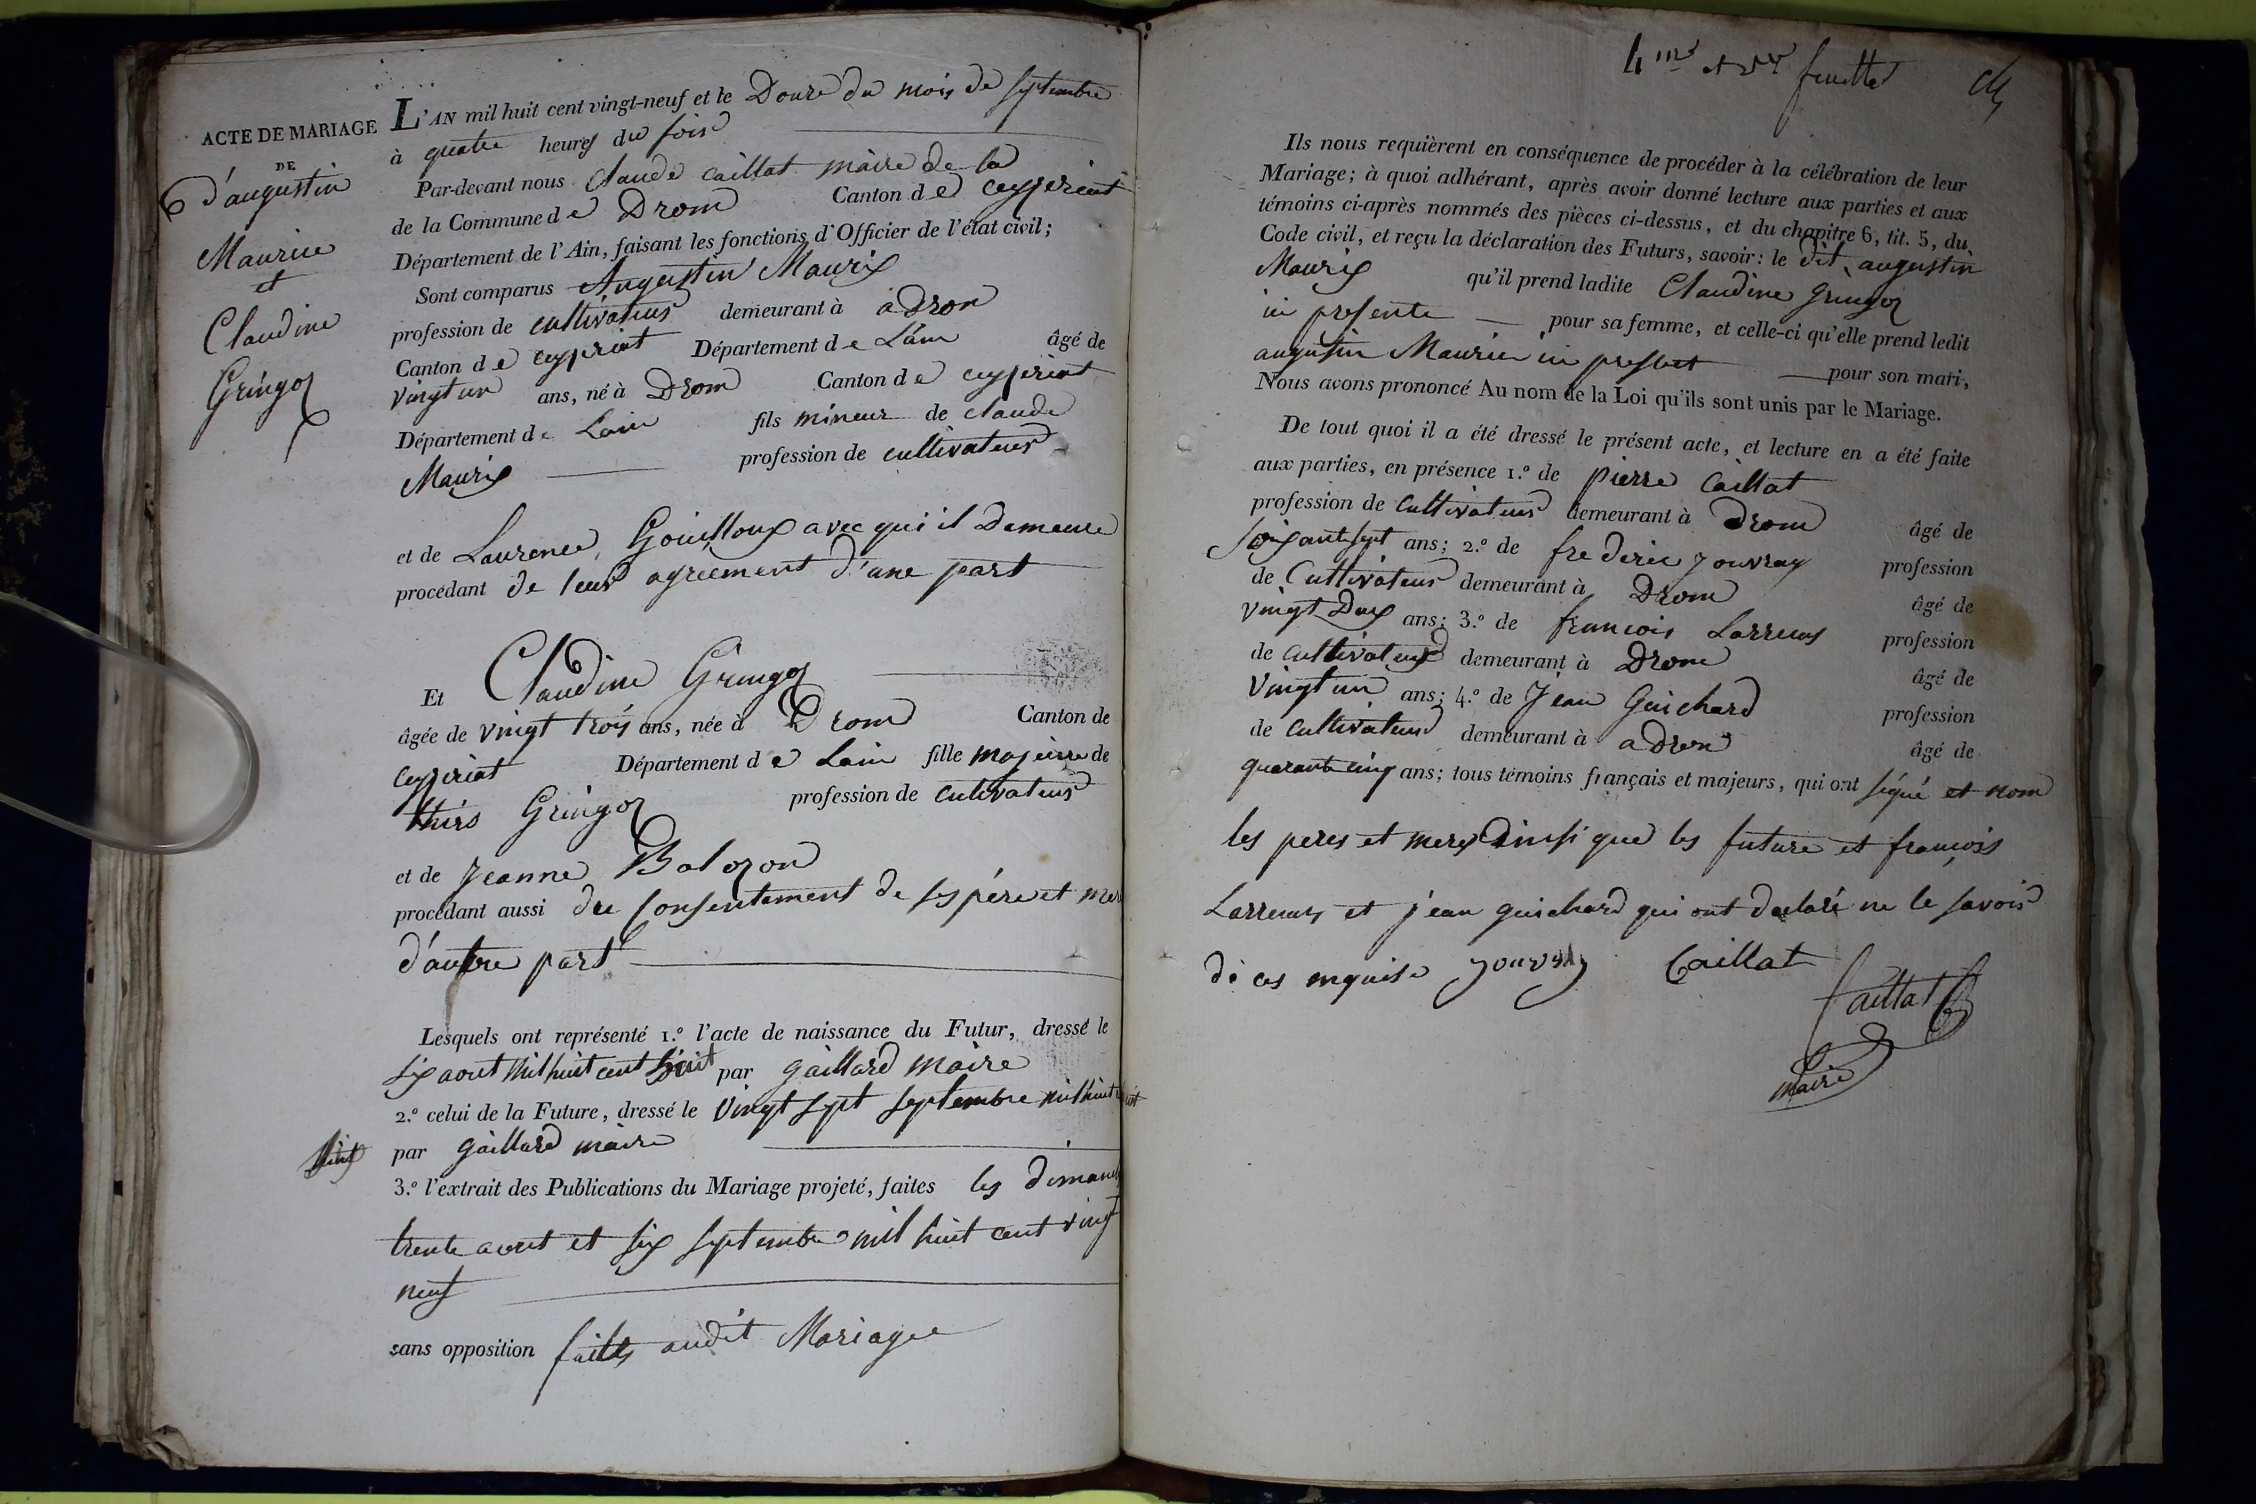 ACTE DE MARIAGE
DE
d'augustin
Maurice
et
Claudine
Gringoz
L'AN mil huit cent vingt-neuf et le Douze du mois de septembre
à quatre heures du soir
Par-devant nous Claude Caillat maire de la
de la Commune de Drom Canton de ceyzeriat
Département de l'Ain, faisant les fonctions d'Officier de l'état civil;
Sont comparus Augustin Maurix
profession de cultivateur demeurant à a Drom
Canton de ceyzeriat Département de Lain âgé de
vingt un ans, né à Drom Canton de ceyzeriat
Département de Lain fils mineur de claude
Maurix profession de cultivateur
et de Laurence Gouilloux avec qui il Demeure
procédant de leur agreement d'une part
Et Claudine Gringoz
âgée de vingt trois ans, née à Drom Canton de
ceyzeriat Département de Lain fille majeure de
Gringoz profession de cultivateur
et de Jeanne Balozon
procédant aussi du consentement de ses pére et mer
d'autre part
Lesquels ont représenté 1.º l'acte de naissance du Futur, dressé le
six aout mil huit cent huit par gaillard maire
2.º celui de la Future, dressé le vingt sept septembre mil huit
par gaillard maire
3.º l'extrait des Publications du Mariage projeté, faites les dimanch
trente aout et six septembre mil huit cent vingt
neuf
sans opposition faites audit Mariage
4me et feuillet
Ils nous requièrent en conséquence de procéder à la célébration de leur
Mariage; à quoi adhérant, après avoir donné lecture aux parties et aux
témoins ci-après nommés des pièces ci-dessus, et du chapitre 6, tit. 5, du
Code civil, et reçu la déclaration des Futurs, savoir: le dit augustin
Maurix qu'il prend ladite Claudine gringoz
ici presente pour sa femme, et celle-ci qu'elle prend ledit
augustin Maurice ici present pour son mari,
Nous avons prononcé Au nom de la Loi qu'ils sont unis par le Mariage.
De tout quoi il a été dressé le présent acte, et lecture en a été faite
aux parties, en présence 1.º de pierre Caillat
profession de Cultivateur demeurant à Drom âgé de
soixante sept ans; 2.º de frederic jouvray profession
de Cultivateur demeurant à Drom âgé de
vingt Dux ans; 3.º de francois Larreurs profession
de cultivateur demeurant à Drom âgé de
vingt un ans; 4.º de Jean Guichard profession
de cultivateur demeurant à a Drom âgé de
quarante cinq ans; tous témoins français et majeurs, qui ont signé et nom
les peres et meres ainsi que les future et françois
Larreurs et jean guichard qui ont declaré ne le savoir
de ces enquise jouvray Caillat
Caillat
maire